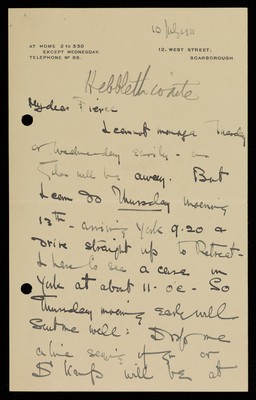 10 July 1911
AT HOME 2 to 3.30
EXCEPT WEDNESDAY.
TELEPHONE Nº 88.
12, WEST STREET,
SCARBOROUGH
Hebblethwaite
My dear Pierce
I cannot manage Tuesday
or Wednesday easily -
will be away. But
I can do Thursday morning
13th - arriving York 9.20 &
drive straight up to Retreat -
I have to see a case in
York at about 11. So
Thursday morning early will
suit me well: Drop me
a line saying if you or
will be at